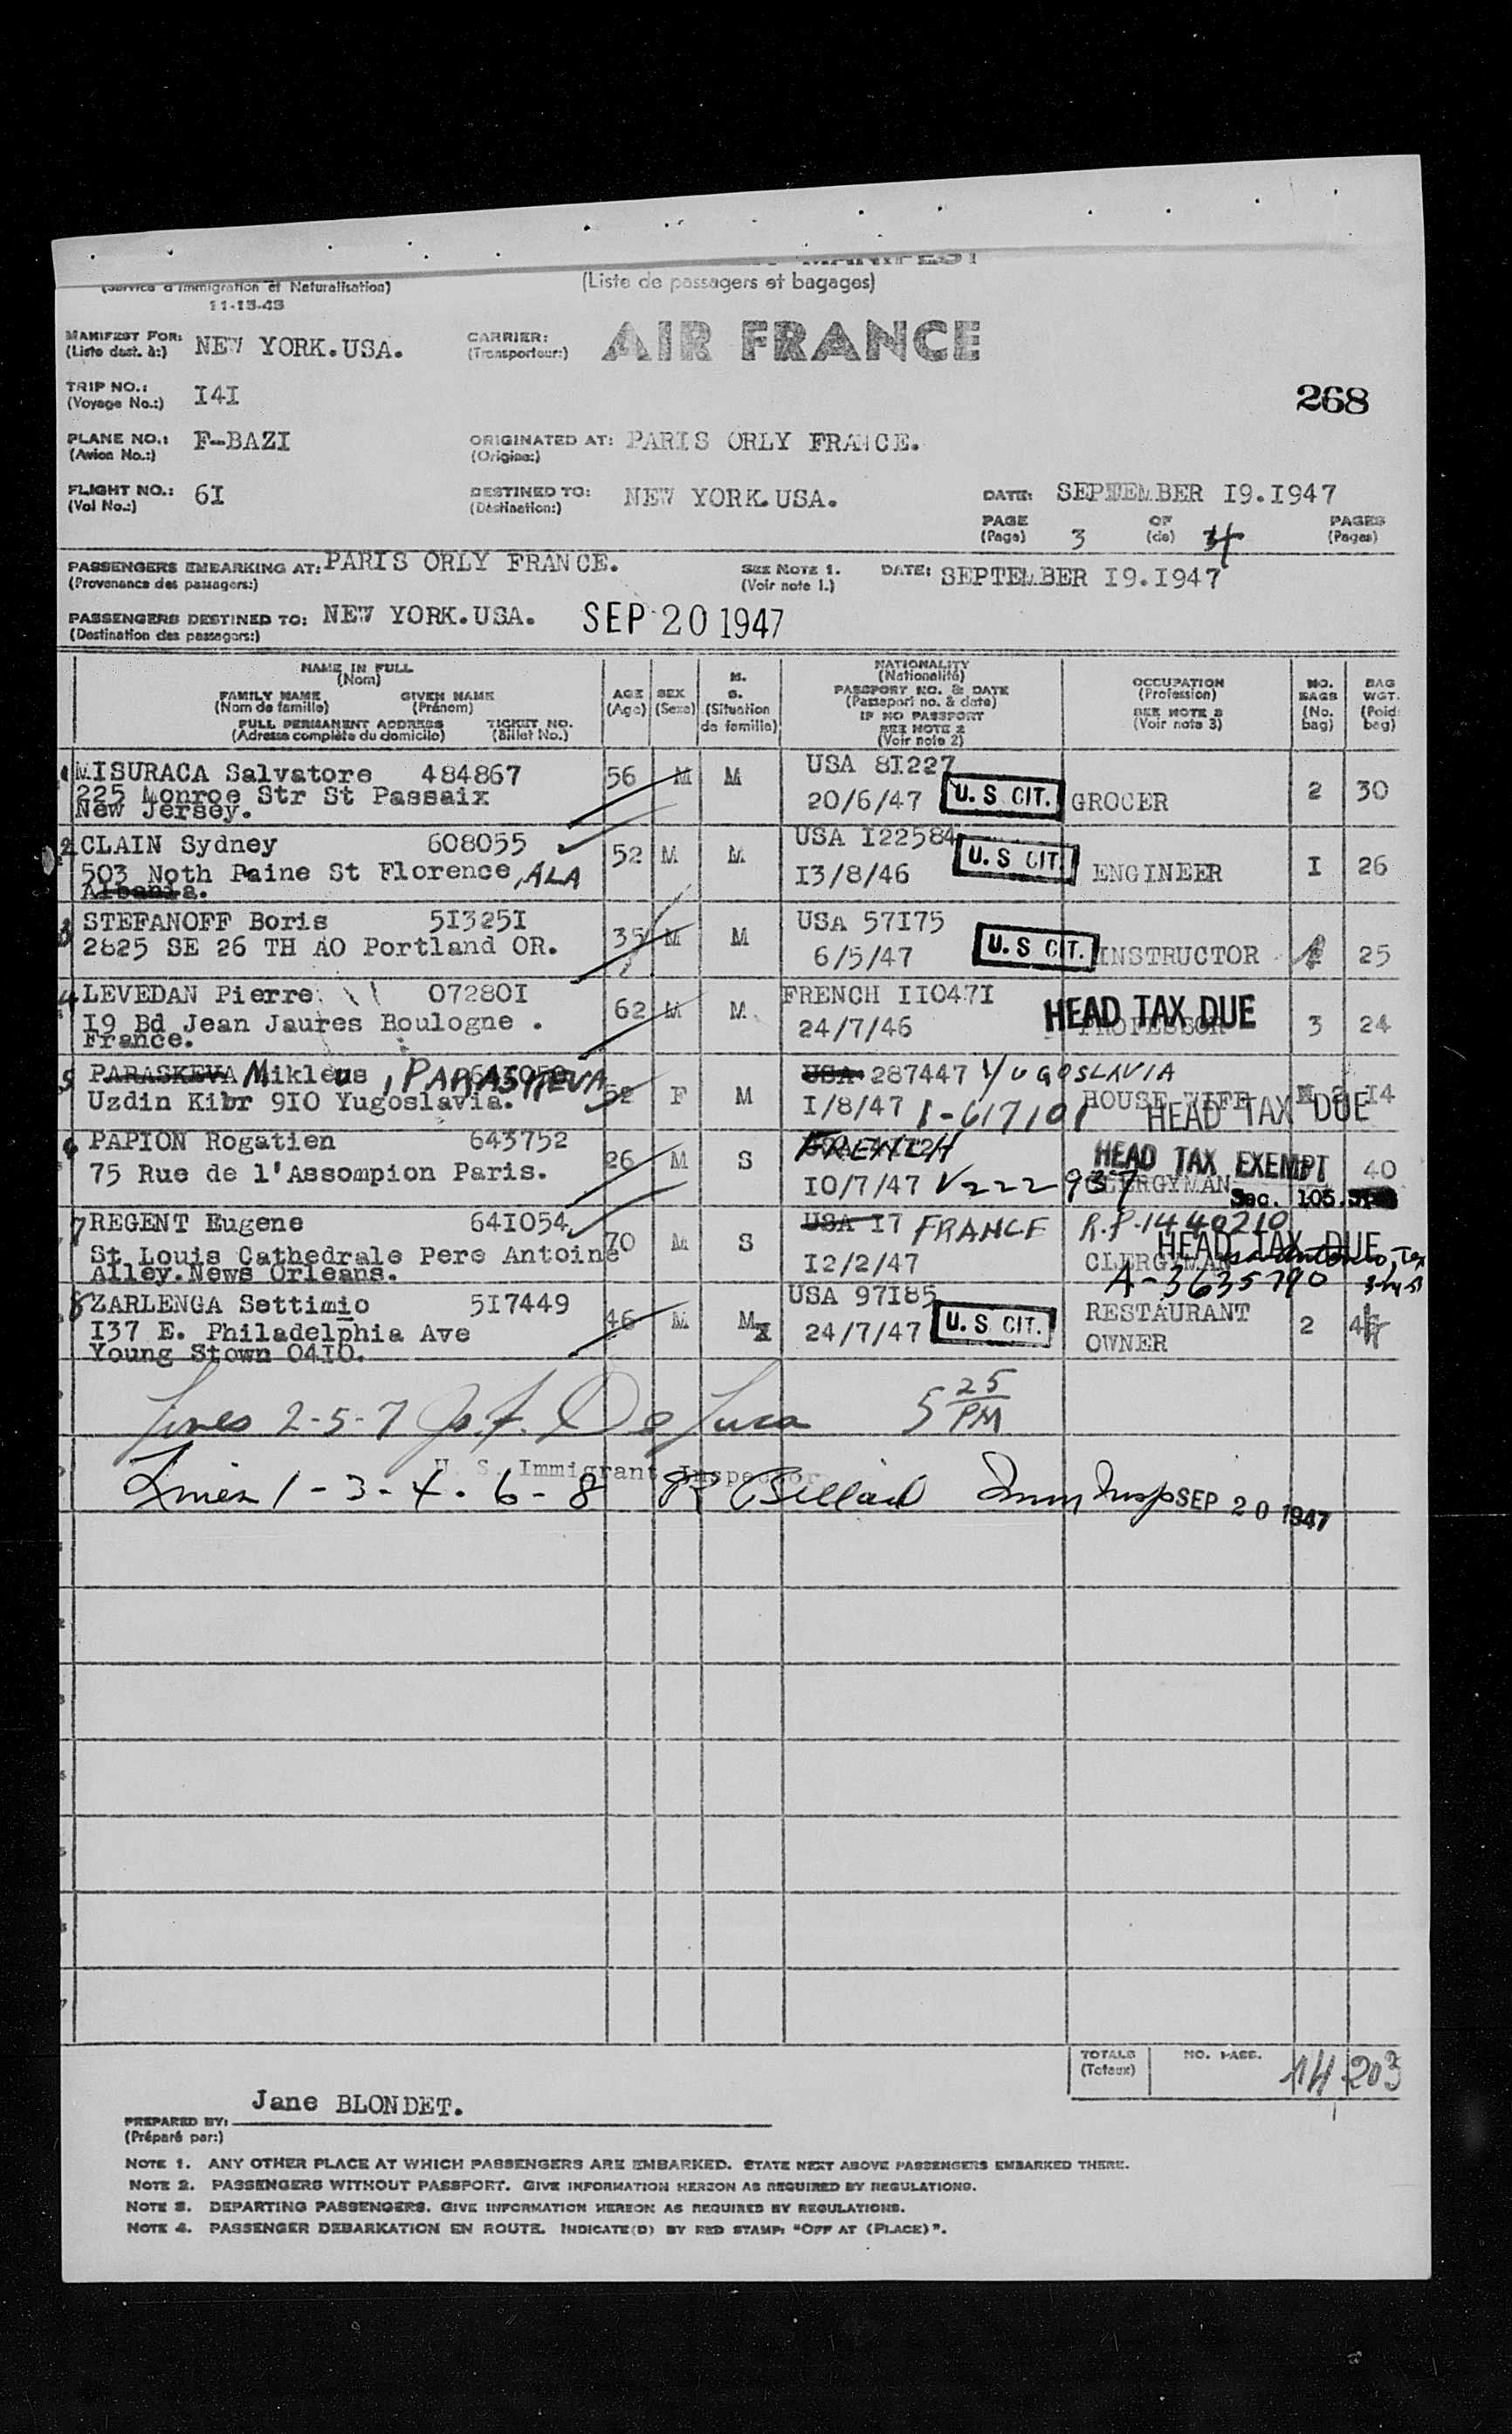 (Service d'Immigration et Naturalisation)
11-13-43
MANIFEST
(Liste de passagers et bagages)
MANIFEST FOR: NEW YORK.USA.
(Liste dest. à:)
CARRIER: AIR FRANCE
(Transporteur:)
TRIP NO.: I4I
(Voyage No.:)
268
PLANE NO.: F-BAZI
(Avion No.:)
ORIGINATED AT: PARIS ORLY FRANCE.
(Origine:)
FLIGHT NO.: 6I
(Vol No.:)
DESTINED TO: NEW YORK.USA.
(Destination:)
DATE: SEPTEMBER I9.I947
PAGE 3 OF 4 PAGES
(Page) (de) (Pages)
PASSENGERS EMBARKING AT: PARIS ORLY FRANCE.
(Provenance des passagers:)
SEE NOTE 1.
(Voir note 1.)
DATE: SEPTEMBER I9.I947
PASSENGERS DESTINED TO: NEW YORK.USA. SEP 20 1947
(Destination des passagers:)
NAME IN FULL
(Nom)
FAMILY NAME GIVEN NAME
(Nom de famille) (Prénom)
FULL PERMANENT ADDRESS TICKET NO.
(Adresse complète du domicile) (Billet No.)
AGE
(Age)
SEX
(Sexe)
M.
S.
(Situation
de famille)
NATIONALITY
(Nationalité)
PASSPORT NO. & DATE
(Passeport no. & date)
IF NO PASSPORT
SEE NOTE 2
(Voir note 2)
OCCUPATION
(Profession)
SEE NOTE 3
(Voir note 3)
NO.
BAGS
(No.
bag)
BAG
WGT.
(Poid
bag)
1 MISURACA Salvatore 484867 56 M M USA 8I227
225 Monroe Str St Passaix 20/6/47 U. S CIT. GROCER 2 30
New Jersey.
2 CLAIN Sydney 608055 52 M M USA I22584
503 Noth Paine St Florence, ALA I3/8/46 U. S CIT. ENGINEER I 26
Albania.
3 STEFANOFF Boris 5I325I 35 M M USA 57I75
2825 SE 26 TH AO Portland OR. 6/5/47 U. S CIT. INSTRUCTOR 25
4 LEVEDAN Pierre 07280I 62 M M FRENCH II047I
I9 Bd Jean Jaures Boulogne . 24/7/46 HEAD TAX DUE PROFESSOR 3 24
France.
5 PARASKEVA Mikleus, PARASKEVA 52 F M USA 287447 YUGOSLAVIA
Uzdin Kibr 9I0 Yugoslavia. I/8/47 1-617101 HOUSE WIFE HEAD TAX DUE 2 I4
6 PAPION Rogatien 643752 26 M S FRENCH
75 Rue de l'Assompion Paris. I0/7/47 V222937 HEAD TAX EXEMPT CLERGYMAN 40
Sec. 105.
7 REGENT Eugene 64I054 70 M S USA I7 FRANCE R.P.1440210
St Louis Cathedrale Pere Antoine I2/2/47 CLERGYMAN HEAD TAX DUE
Alley.News Orleans. A-3635790
8 ZARLENGA Settimio 5I7449 46 M M USA 97I85
I37 E. Philadelphia Ave 24/7/47 U. S CIT. RESTAURANT 2
Young Stown 04I0. OWNER
Lines 2-5-7 Jo. F. De Luca 5 25 PM
U. S. Immigrant Inspector
Lines 1-3-4-6-8 Imm Insp SEP 20 1947
TOTALS NO. PASS. 14 203
(Totaux)
Jane BLONDET.
PREPARED BY:
(Préparé par:)
NOTE 1. ANY OTHER PLACE AT WHICH PASSENGERS ARE EMBARKED. STATE NEXT ABOVE PASSENGERS EMBARKED THERE.
NOTE 2. PASSENGERS WITHOUT PASSPORT. GIVE INFORMATION HEREON AS REQUIRED BY REGULATIONS.
NOTE 3. DEPARTING PASSENGERS. GIVE INFORMATION HEREON AS REQUIRED BY REGULATIONS.
NOTE 4. PASSENGER DEBARKATION EN ROUTE. INDICATE(D) BY RED STAMP: "OFF AT (PLACE)".